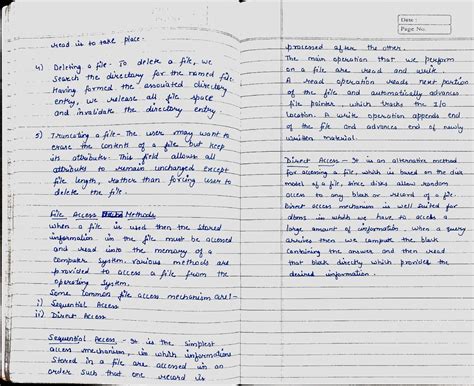 read is to take place.
4) Deleting a file - To delete a file, we
search the directory for the named file
Having formed the associated directory
entry, we release all file space
and invalidate the directory entry
5) Truncating a file - The user may want to
erase the contents of a file but keep
its attributes. This field allows all
attributes to remain unchanged except
file length, rather than forcing user to
delete the file.
File Access Methods
When a file is used then the stored
information in the file must be accessed
and read into the memory of a
computer system. Various methods are
provided to access a file from the
operating system.
Some common file access mechanism are:-
i) Sequential Access
ii) Direct Access
Sequential Access - It is the simplest
access mechanism, in which informations
stored in a file are accessed in an
order such that one record is
Date :
Page No.
processed after the other.
The main operation that we perform
on a file are read and write.
A read operation reads next portion
of the file and automatically advances
file pointer which tracks the I/O
location. A write operation appends end
of the file and advances end of newly
written material.
Direct Access - It is an alternative method
for accessing a file, which is based on the disk
model of a file, since disks allow random
access to any block or record of a file.
Direct access mechanism is well suited for
items in which we have to access a
large amount of information. When a query
arrives then we compute the block
containing the answer, and then read
that block directly which provided the
desired information.